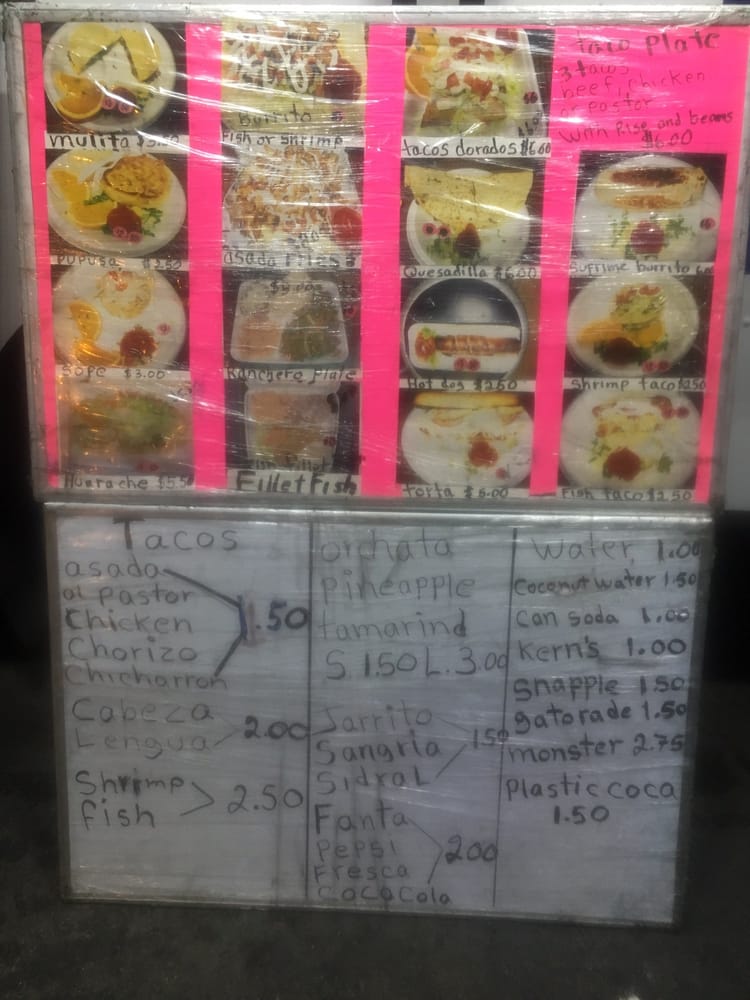 mulita
burrito
Fish or Shrimp
tacos dorados $6.00
taco plate
3 tacos
beef, chicken
or pastor
with Rise and beans
$6.00
PUPUSA $2.50
asada fries
Quesadilla $6.00
Suprime burrito
Sope $3.00
Ranchero plate
Hot dog $2.50
Shrimp taco $2.50
Huarache $5.50
Fish fillet
Fillet Fish
torta $6.00
Fish taco $2.50
Tacos
asada
al Pastor
Chicken
Chorizo
Chicharron
1.50
Cabeza
Lengua
2.00
Shrimp
fish
2.50
orchata
Pineapple
tamarind
S. 1.50 L. 3.00
Jarrito
Sangria
Sidral
1.50
Fanta
Pepsi
Fresca
CocaCola
2.00
Water 1.00
Coconut water 1.50
Can soda 1.00
Kern's 1.00
Snapple 1.50
gatorade 1.50
monster 2.75
Plastic coca
1.50